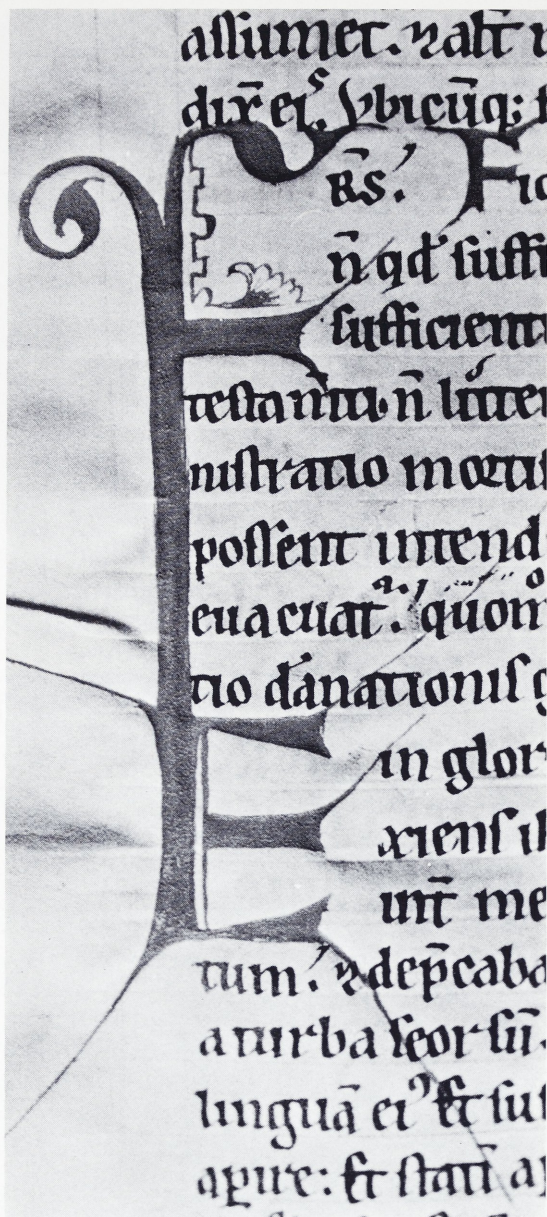 aſſumet. ⁊ alt̄
dix̄ eiˢ. ybicūq;
R̄S. F
n̄ qd̄ ſuffi
ſufficient
teſtam̄ti. n̄ litte
niſtratio morti
poſſent intend
euacuat̄. quom̊
tio dānationiſ g
in glor
E xienſ ih
unt̄ me
tum. ⁊ dep̄caba
a turba ſeorſū.
linguā eiꝰ Et ſuſ
apire: Et ſtati a